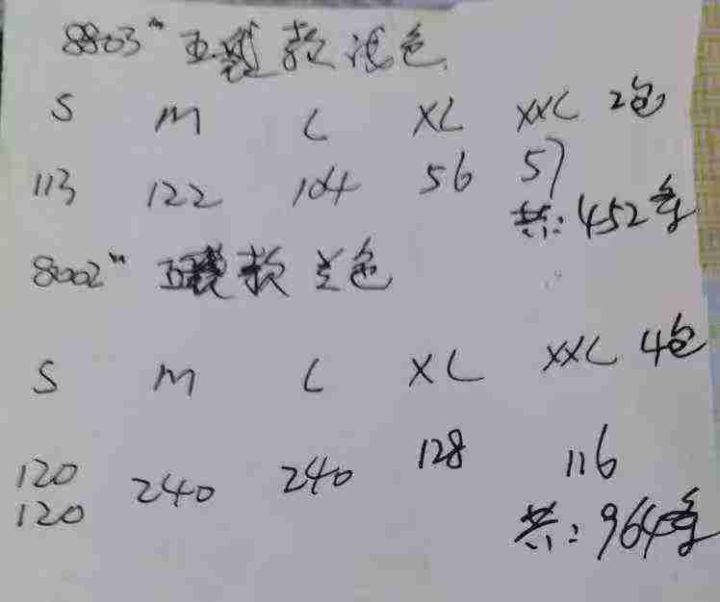 8803" 五裂款浅色
S M L XL XXL 2包
113 122 104 56 57
共:452条
8002" 五裂款兰色
S M L XL XXL 4包
120 240 240 128 116
120
共:964条